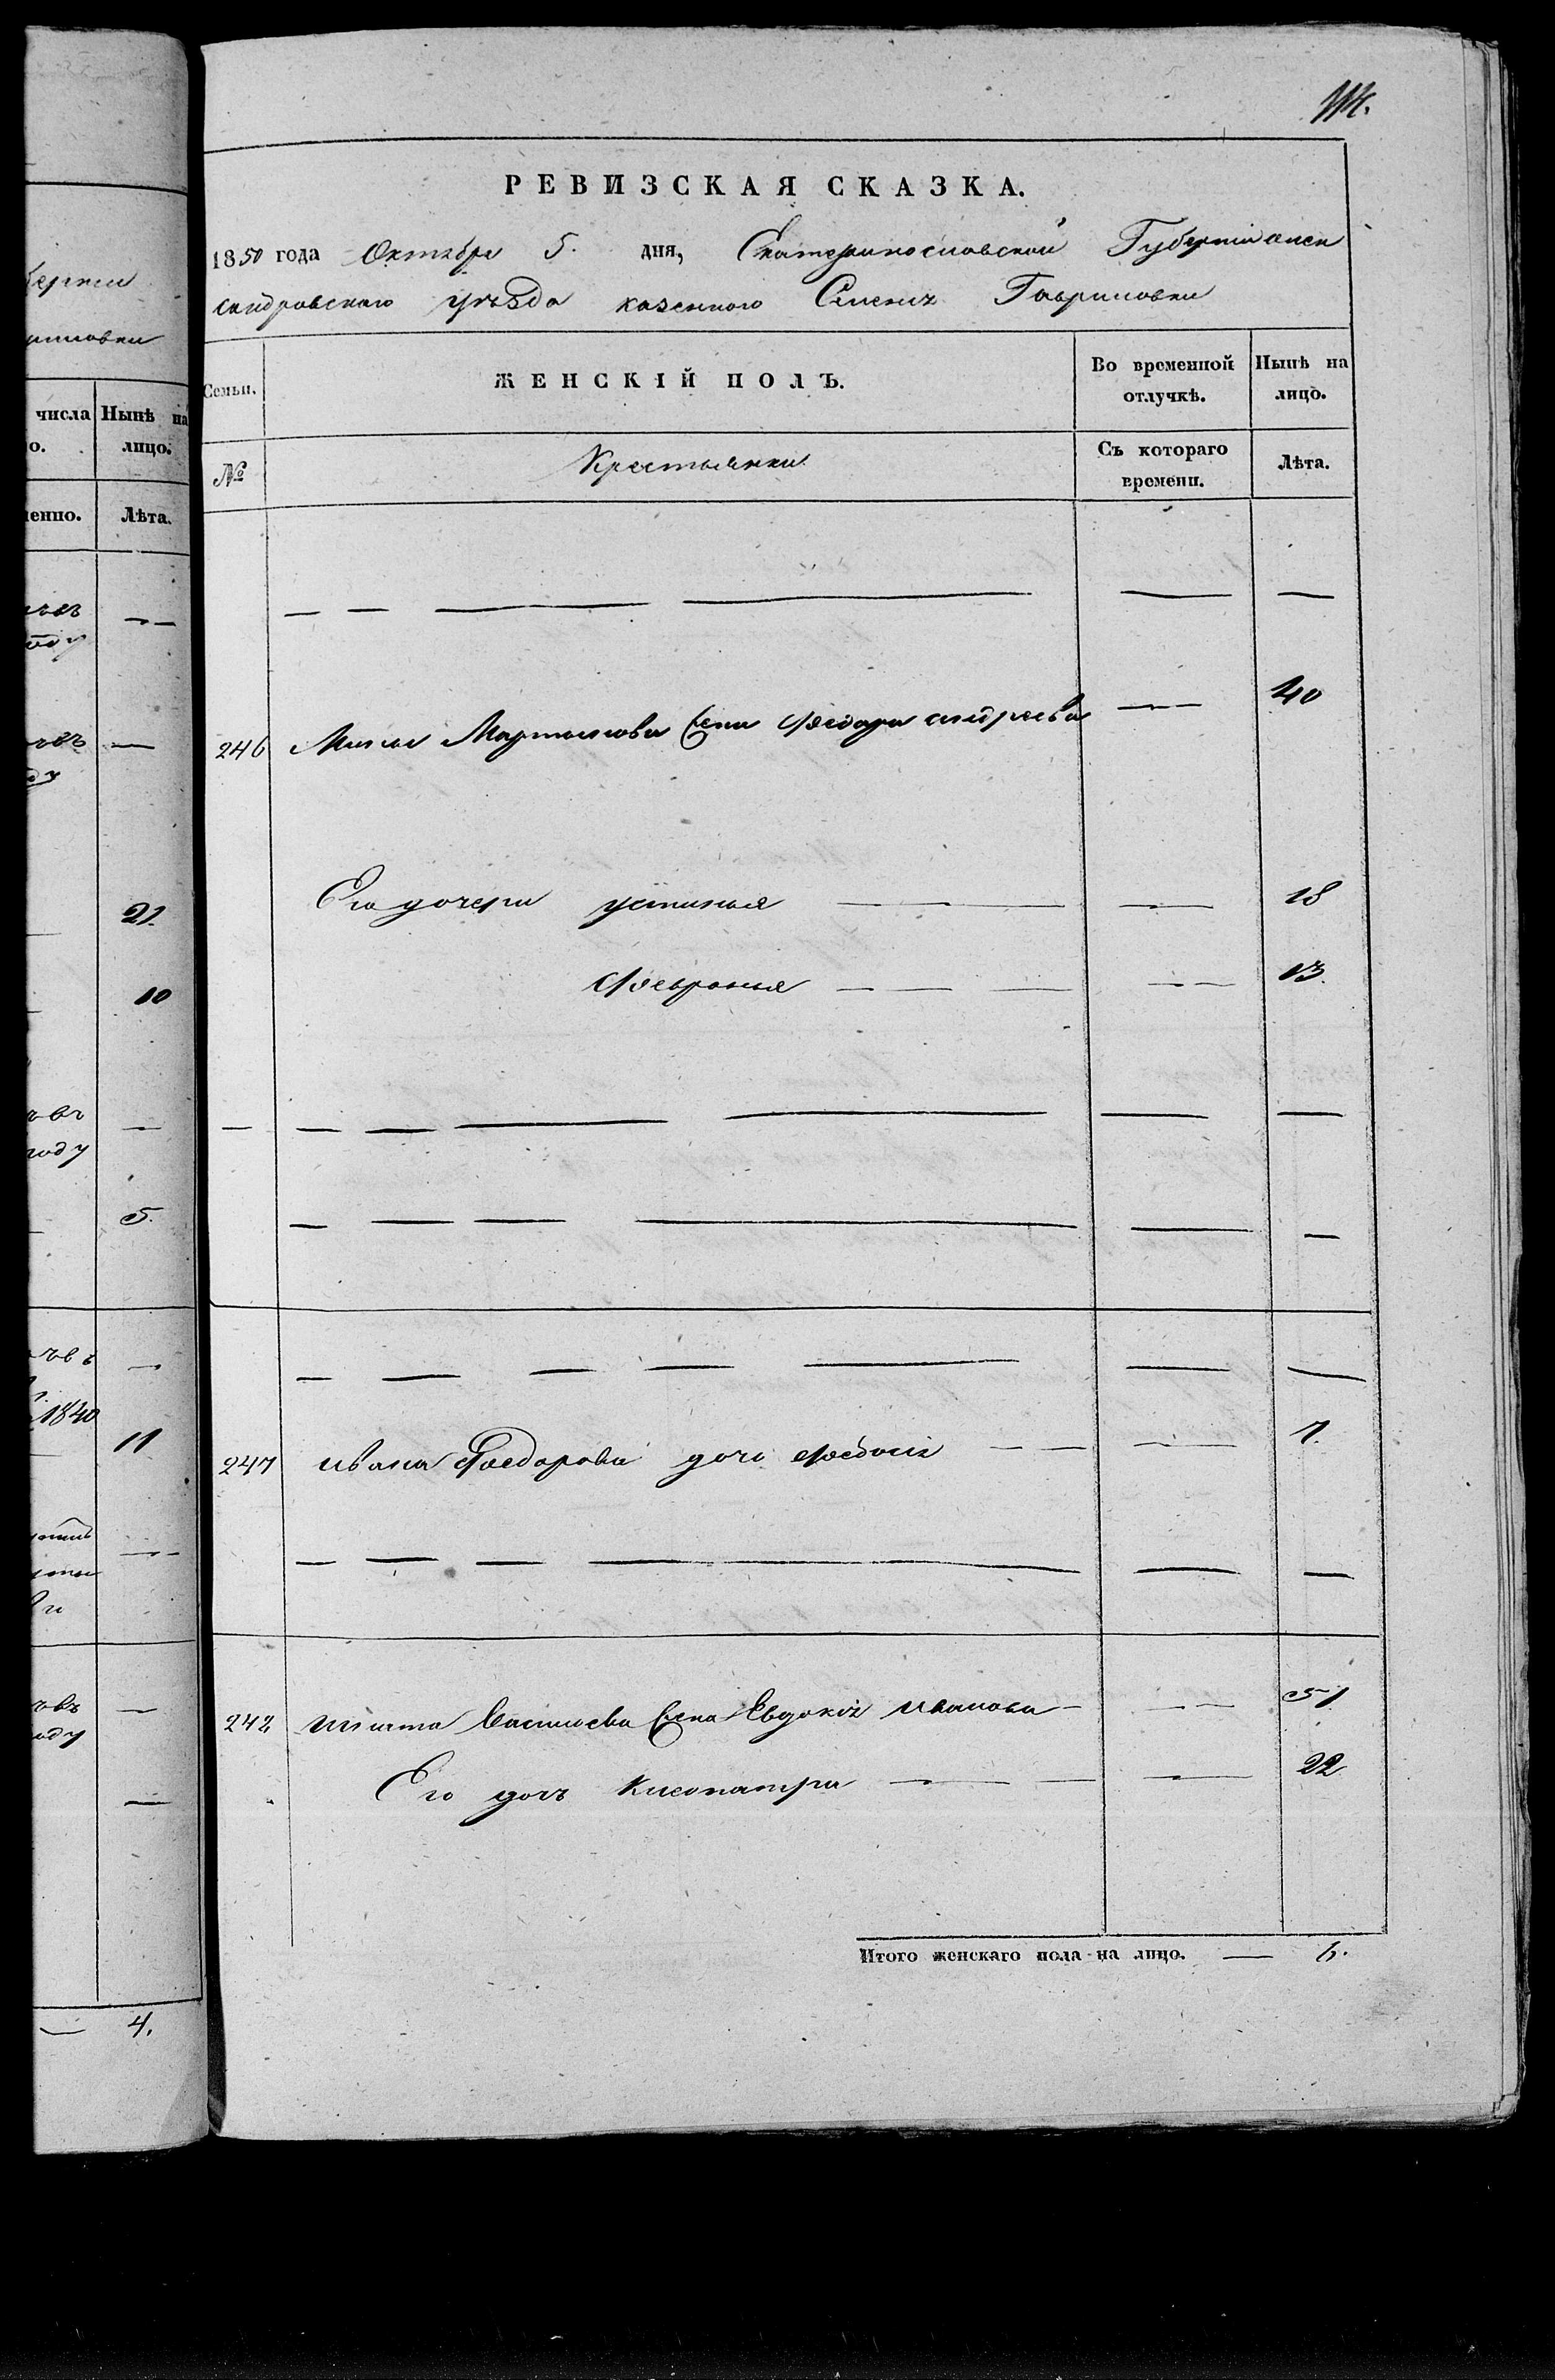 114.
РЕВИЗСКАЯ СКАЗКА.
1850 года Октября 5. дня, Екатеринославской Губерніи алек
сандровскаго уѣзда казеннаго Селенія Гавриловки
Семьи. ЖЕНСКІЙ ПОЛЪ. Во временной отлучкѣ. Нынѣ на лицо.
№ Крестьянки Съ котораго времени. Лѣта.
246 Мартынова жена Федора андреева — 40
Его дочери устинья — — 18
Февронья — — 13.
247 ивана Федорова дочь Федосія — — 7.
242 игната Васильева жена Евдокія иванова — — 51
Его дочь Клеопатра — — 22
Итого женскаго пола на лицо. — 6.
числа Нынѣ на
о. лицо.
енно. Лѣта.
21.
10
году
5.
1840
11
4.